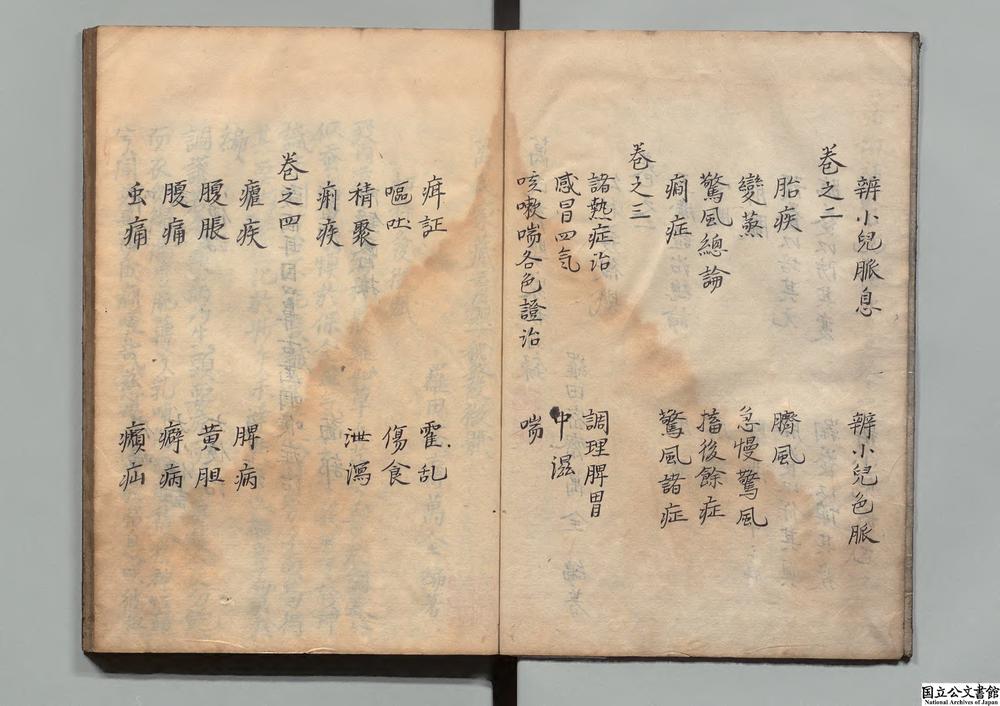 辨小兒脈息　辨小兒色脈
卷之二
胎疾　臍風
變蒸　急慢驚風
驚風總論　搐後餘症
癇症　驚風諸症
卷之三
諸熱症治　調理脾胃
感冒四氣　中濕
咳嗽喘各色證治　喘
疳証　霍乱
嘔吐　傷食
積聚　泄瀉
痢疾
卷之四
瘧疾　脾病
腹脹　黄胆
腹痛　癖病
虫痛　癩疝
国立公文書館
National Archives of Japan